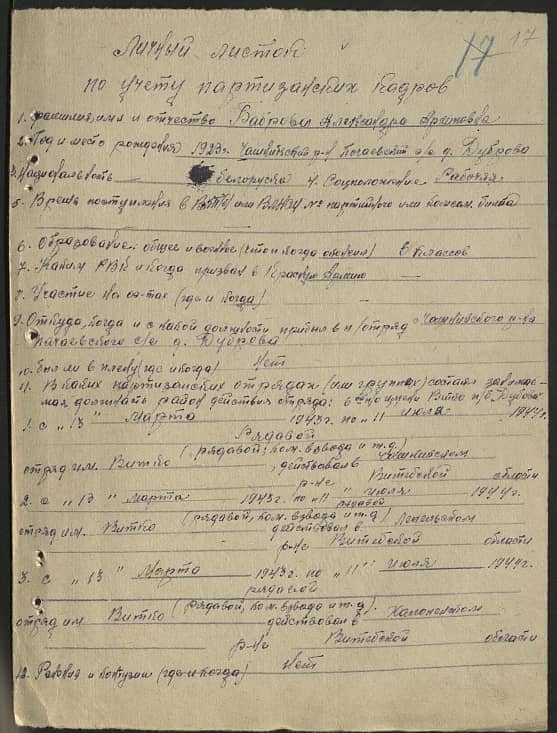 17 17
Личный листок
по учету партизанских кадров
1. Фамилия, имя и отчество Боброва Александра Архиповна
2. Год и место рождения 1923г. Чашникский р-н Почаевский с/с д. Дуброва
3. Национальность белоруска 4. Соцположение Рабочая
5. Время поступления в ВКП(б) или ВЛКСМ № партийного или комсом. билета
6. Образование: общее и военное (что и когда окончил) 6 классов
7. Каким РВК и когда призван в Красную Армию —
8. Участие на фр-тах (где и когда) —
9. Откуда, когда и с какой должности прибыл в п/отряд Чашникского р-на
почаевского с/с д. Дуброва
10. был ли в плену (где и когда) Нет
11. В каких партизанских отрядах (или группах) состоял занимае-
мая должность район действия отряда: в отряде Витко п/б Дубова
1. с "13" Марта 1943г. по "11" июля 1944г.
Рядовой
отряд им. Витко (рядовой, ком. взвода и т.д.), действовал в Чашникском
р-не Витебской области
2. с "13" Марта 1943г. по "11" июля 1944г.
рядовой
отряд им. Витко (рядовой, ком. взвода и т.д) действовал в Лепельском
р-не Витебской области
3. с "13" Марта 1943г. по "11" июля 1944г.
рядовой
отряд им. Витко (рядовой, ком. взвода и т.д). действовал в
р-не Витебской области
12. Ранения и контузии (где и когда) Нет